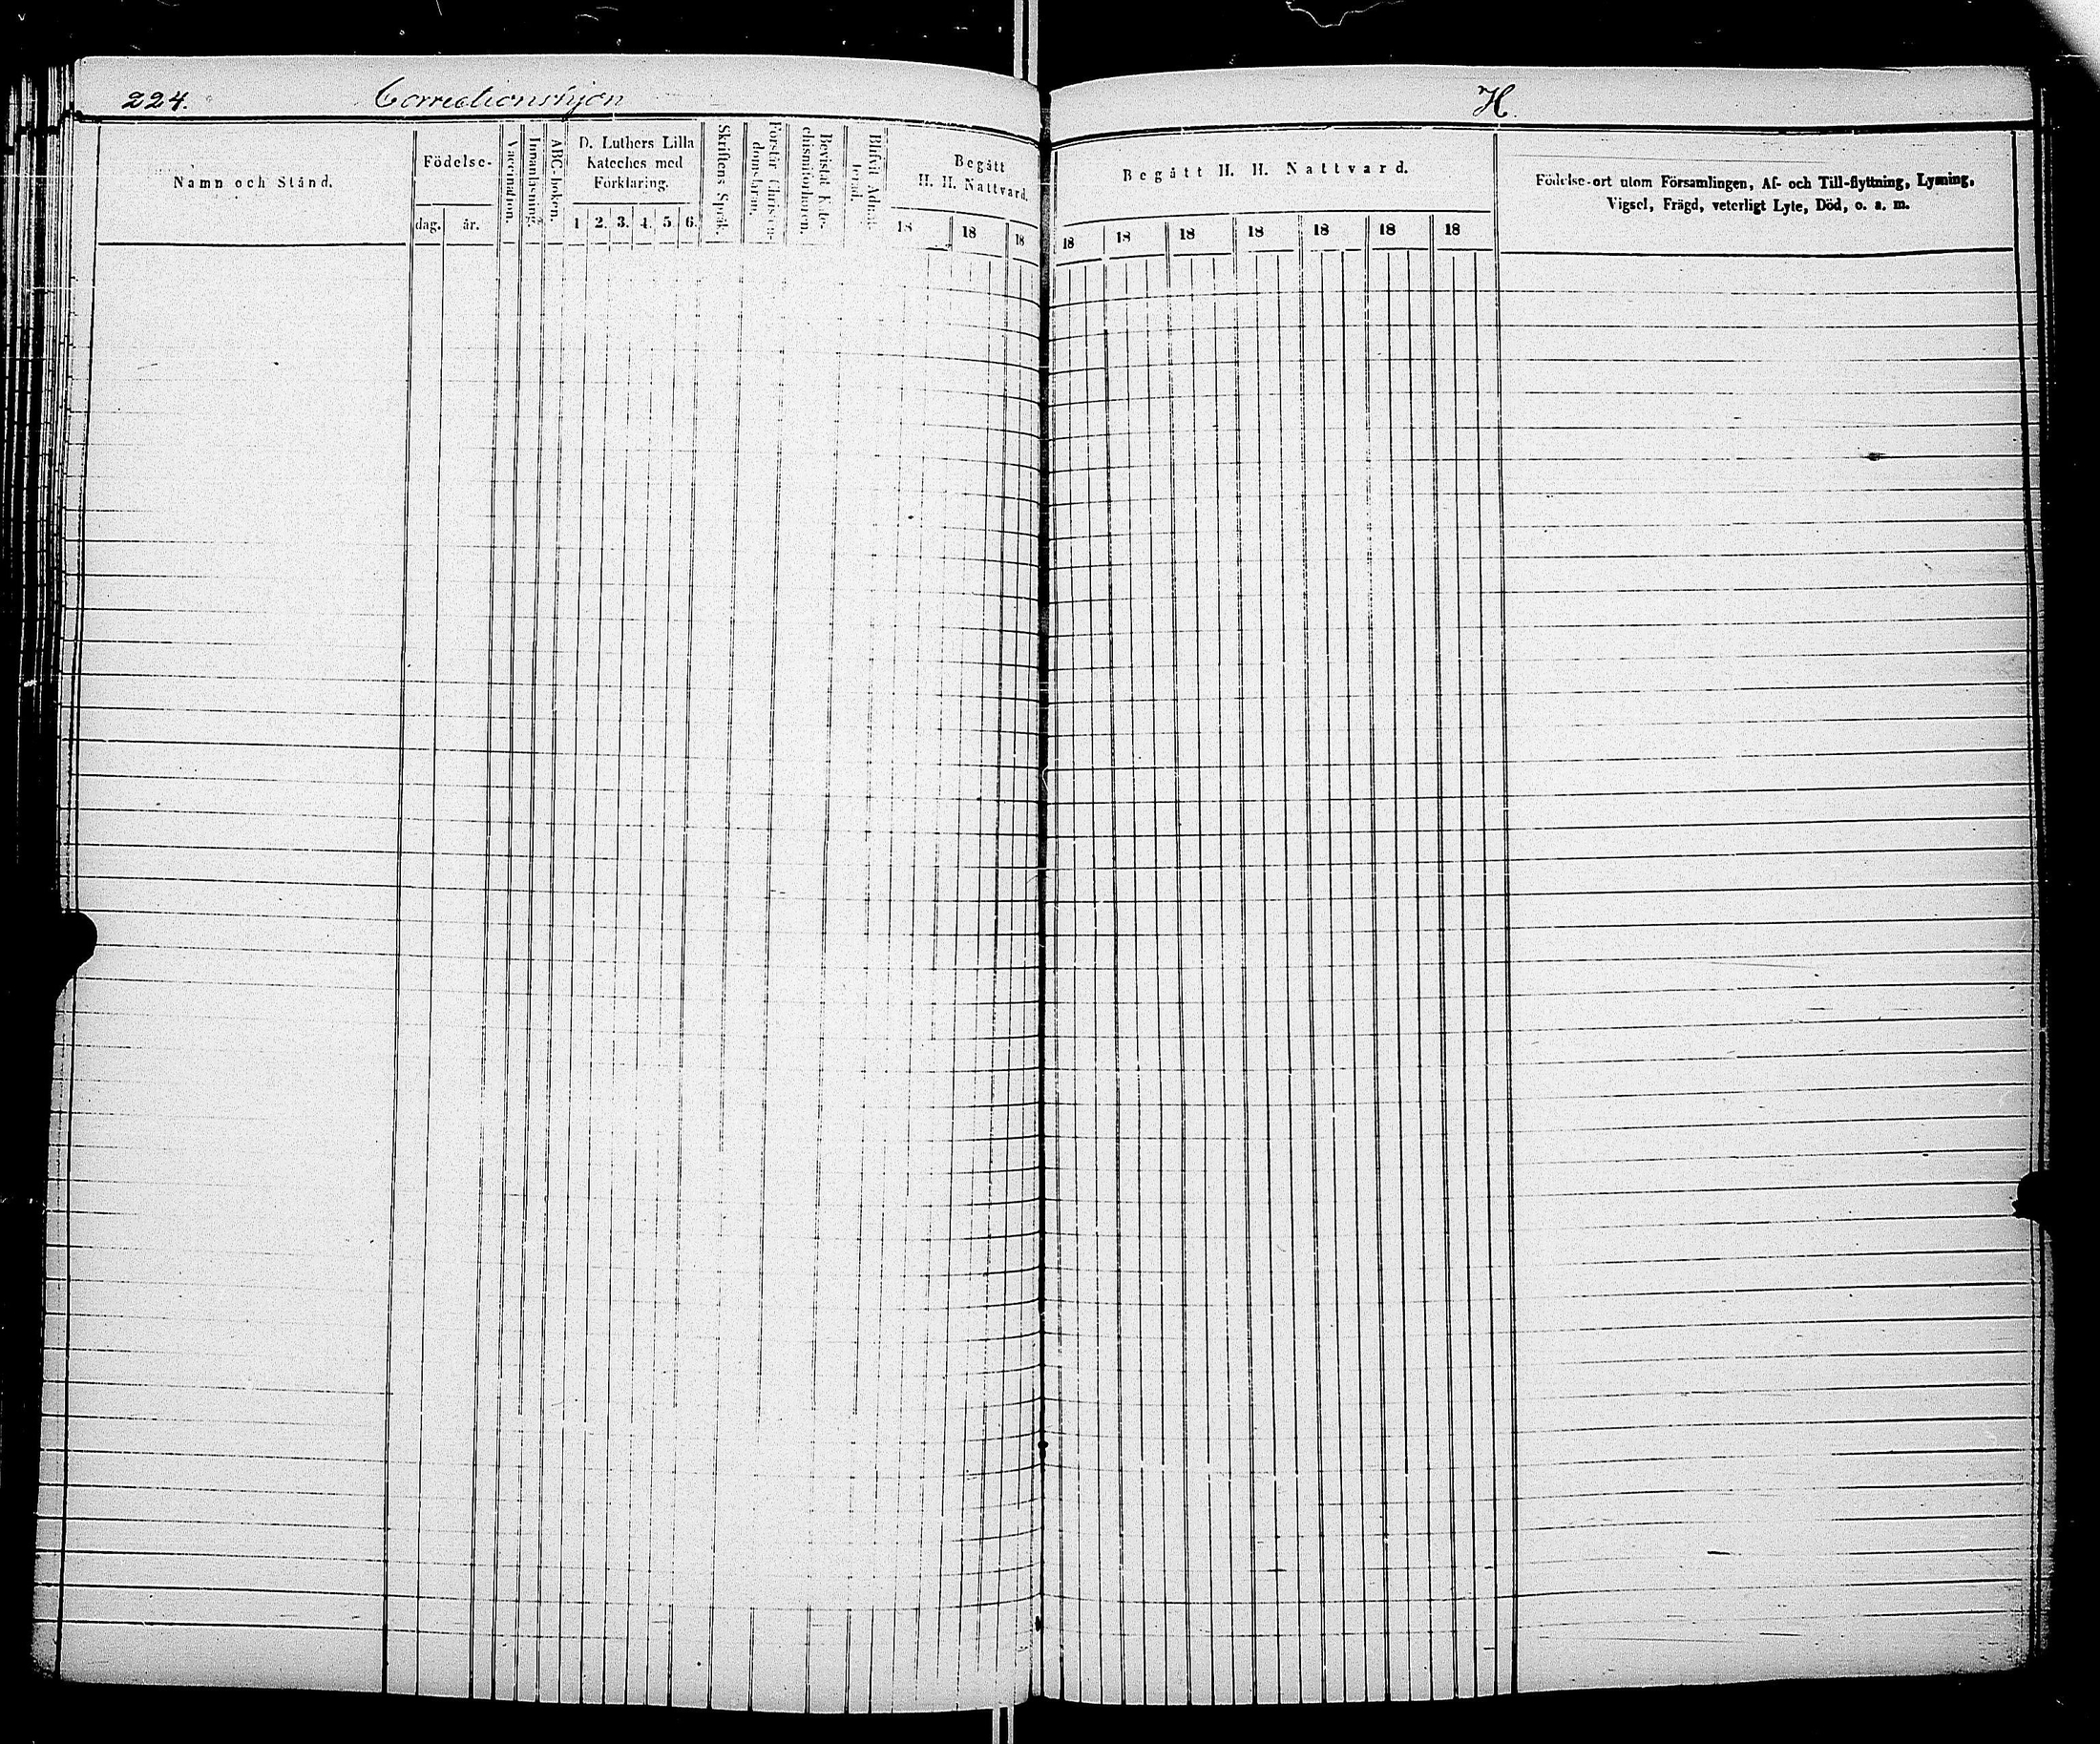 224. Correctionshjon H.
Namn och Stånd.
Födelse-
dag. år.
Vaccination.
Innanläsning.
ABC-boken.
D. Luthers Lilla
Kateches med
Förklaring.
1 2. 3. 4. 5. 6.
Skriftens Språk.
Förstår Christen-
domslæran.
Bevistat Kate-
chismiförhören.
Blifvit Admit-
terad.
Begått
H. H. Nattvard.
18 18 18
Begått H. H. Nattvard.
18 18 18 18 18 18 18
Födelse-ort utom Församlingen, Af- och Till-flyttning, Lysning,
Vigsel, Frägd, veterligt Lyte, Död, o. s. m.